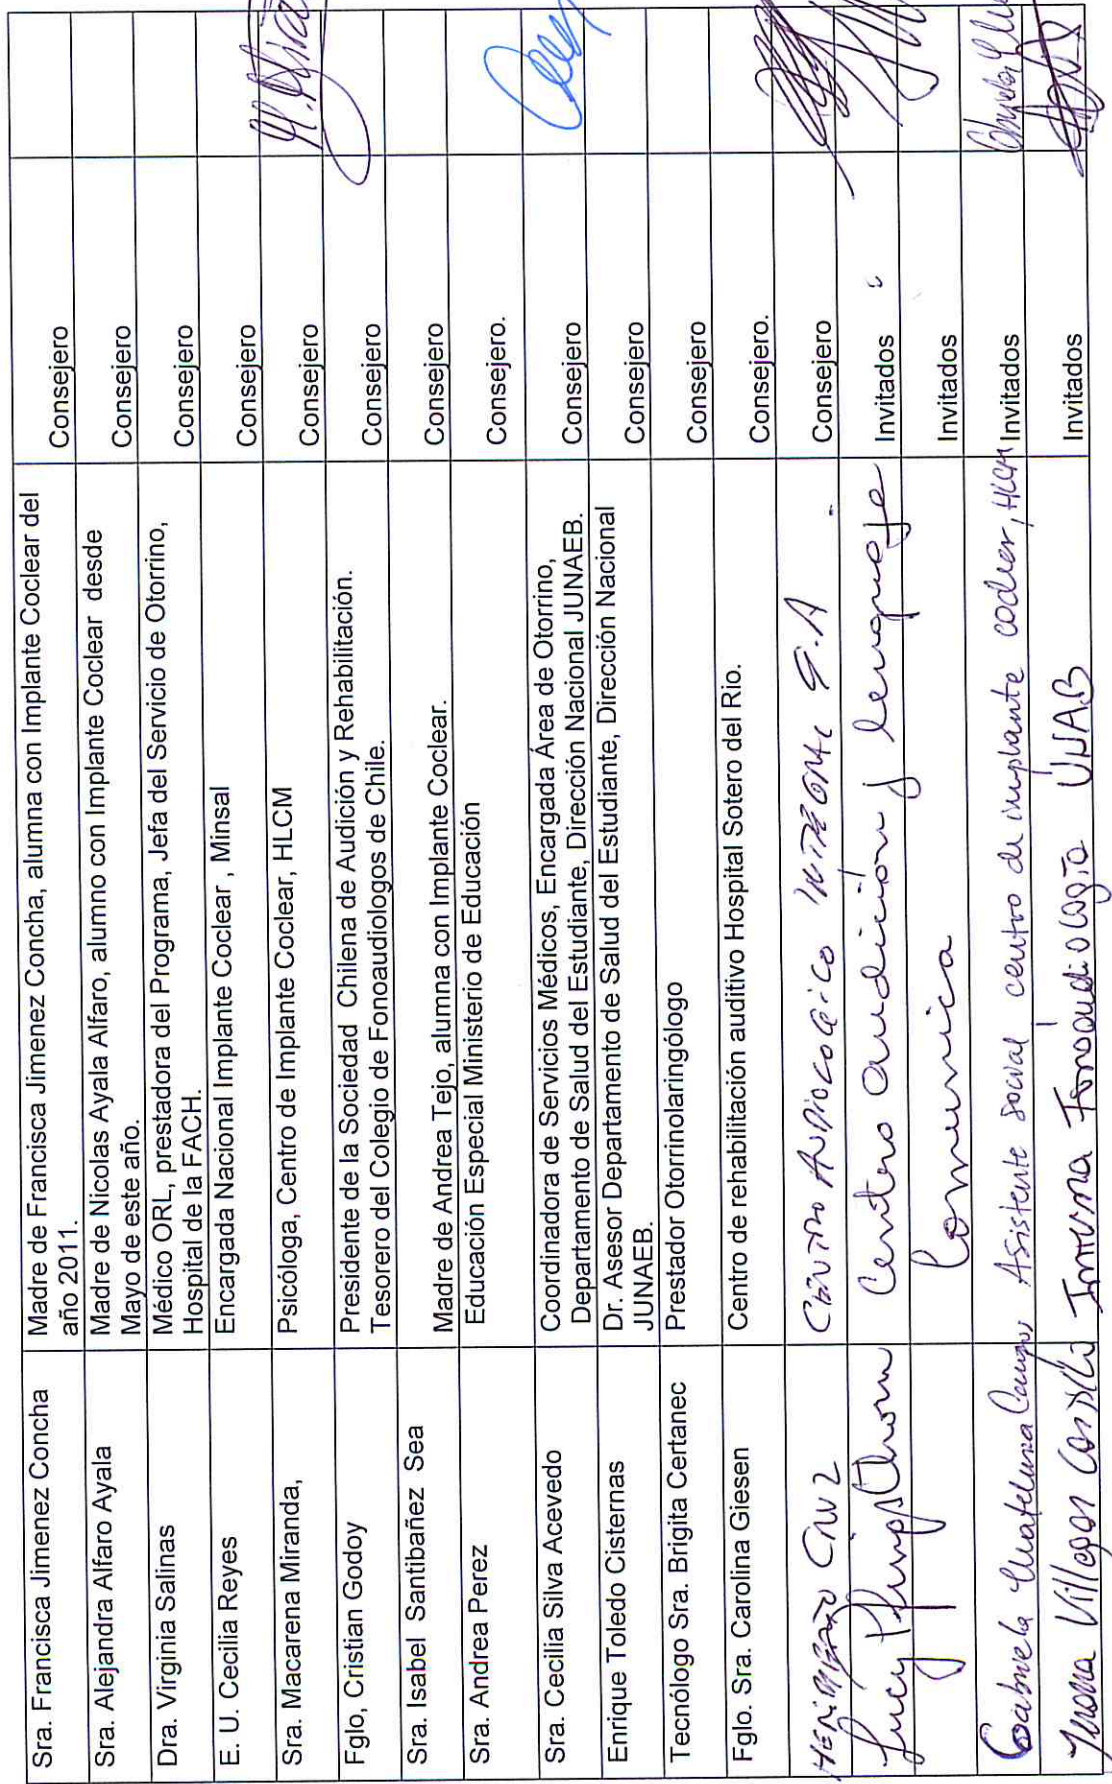 Sra. Francisca Jimenez Concha
Madre de Francisca Jimenez Concha, alumna con Implante Coclear del
año 2011.
Consejero
Sra. Alejandra Alfaro Ayala
Madre de Nicolas Ayala Alfaro, alumno con Implante Coclear desde
Mayo de este año.
Consejero
Dra. Virginia Salinas
Médico ORL, prestadora del Programa, Jefa del Servicio de Otorrino,
Hospital de la FACH.
Consejero
E. U. Cecilia Reyes
Encargada Nacional Implante Coclear , Minsal
Consejero
Sra. Macarena Miranda,
Psicóloga, Centro de Implante Coclear, HLCM
Consejero
Fglo, Cristian Godoy
Presidente de la Sociedad Chilena de Audición y Rehabilitación.
Tesorero del Colegio de Fonoaudiologos de Chile.
Consejero
Sra. Isabel Santibañez Sea
Madre de Andrea Tejo, alumna con Implante Coclear.
Consejero
Sra. Andrea Perez
Educación Especial Ministerio de Educación
Consejero.
Sra. Cecilia Silva Acevedo
Coordinadora de Servicios Médicos, Encargada Área de Otorrino,
Departamento de Salud del Estudiante, Dirección Nacional JUNAEB.
Consejero
Enrique Toledo Cisternas
Dr. Asesor Departamento de Salud del Estudiante, Dirección Nacional
JUNAEB.
Consejero
Tecnólogo Sra. Brigita Certanec
Prestador Otorrinolaringólogo
Consejero
Fglo. Sra. Carolina Giesen
Centro de rehabilitación auditivo Hospital Sotero del Rio.
Consejero.
CRUZ
CENTRO AUDIOLOGICO
Consejero
Lucy
Centro audición y lenguaje
Invitados
Comunica
Invitados
Gabriela Matelluna Campos
Asistente social centro de implante coclear, HLCM
Invitados
Irma Villegas
Fonoaudiología UNAB
Invitados